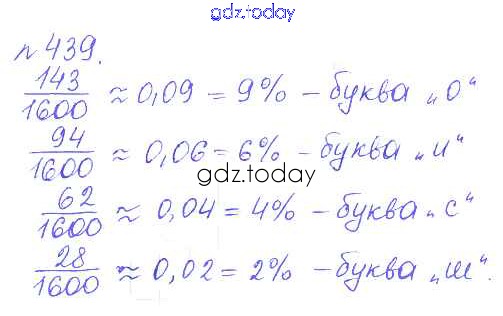 gdz.today
№439.
143/1600 ≈ 0,09 = 9% – буква „о"
94/1600 ≈ 0,06 = 6% – буква „и"
gdz.today
62/1600 ≈ 0,04 = 4% – буква „с"
28/1600 ≈ 0,02 = 2% – буква „ш".